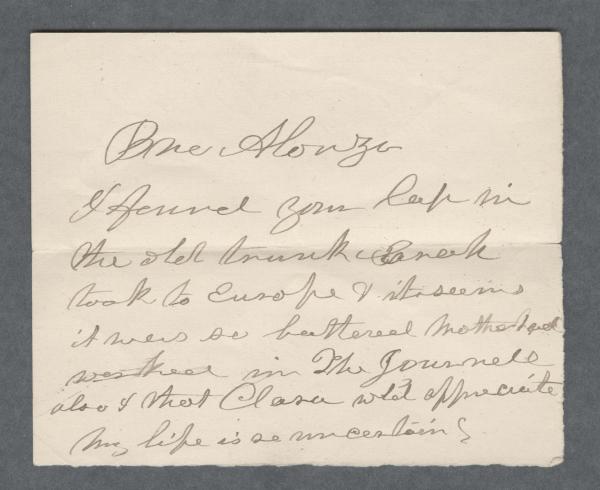 Bro Alonzo
I found your Cap in
the old trunk Sarah
took to Europe & it seems
it was so battered Mother had
in The Journels
also & that Clara wld appreciate
My life is so uncertain